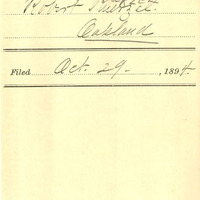 Robert
Oakland
Filed Oct. 29 - , 1894.